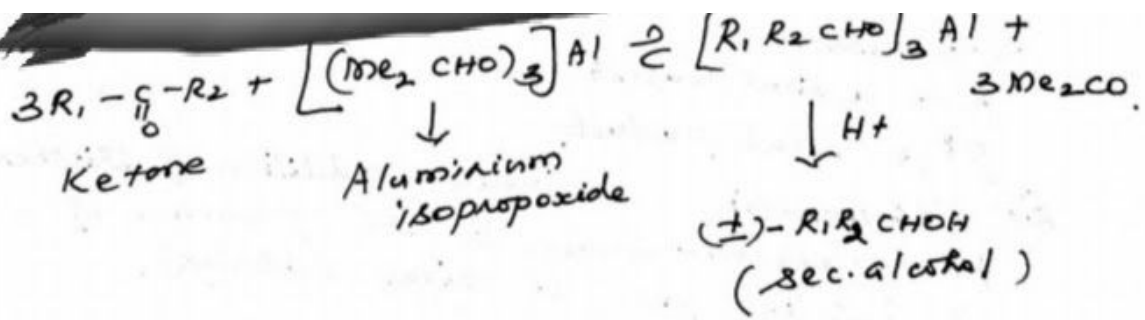 3R₁ - C - R₂ + [(Me₂ CHO)₃] Al ⇌ [R₁ R₂ CHO]₃ Al +
O
3 Me₂CO.
Ketone
↓
Aluminium
isopropoxide
↓ H+
(±)- R₁R₂ CHOH
(sec. alcohol)